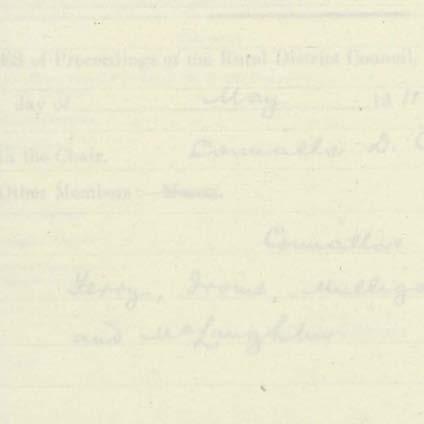 ES of Proceedings of the Rural District Council,
day of May 19 11
in the Chair. Councillor D.
Other Members :—
Councillors
Ferry, Irons, Millig
and McLaughlin